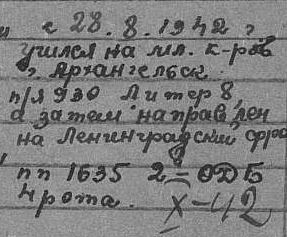 с 28.8.1942 г
учился на мл. к-ров
г. Архангельск.
п/я 930 Литер 8,
а затем направлен
на Ленинградский фро
в
пп 1635 2-ОДБ
4 рота. X-42